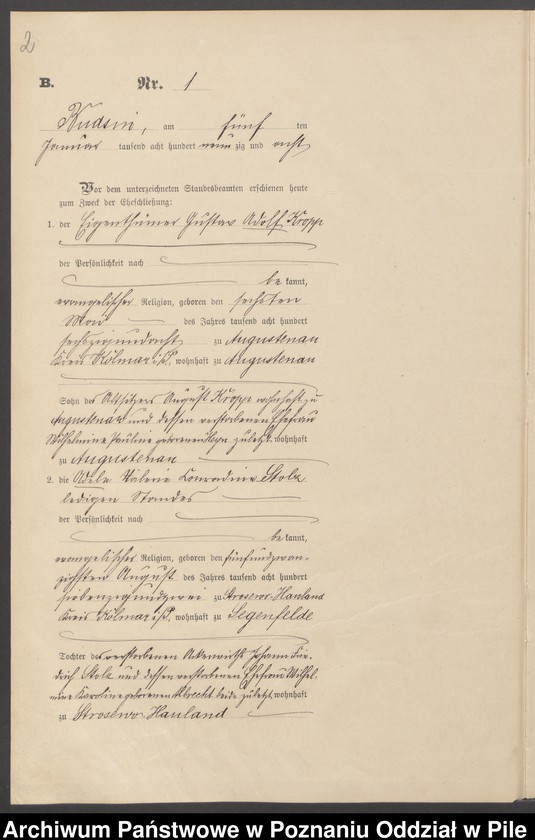 2
B. Nr. 1
Kudsin, am fünf ten
Januar tausend acht hundert neun zig und acht
Vor dem unterzeichneten Standesbeamten erschienen heute
zum Zweck der Eheschließung:
1. der Eigenthümer Gustav Adolf Kropp
der Persönlichkeit nach
be kannt,
evangelischer Religion, geboren den sechsten
Mai des Jahres tausend acht hundert
sechszigundacht zu Augustenau
Kreis Kolmar i/P., wohnhaft zu Augustenau
Sohn des Altsitzers August Kroppe wohnhaft zu
Augustenau und dessen verstorbenen Ehefrau
Wilhelmine Pauline geborenen zuletzt wohnhaft
zu Augustenau
2. die Adele Valerie Konradine Stolz
ledigen Standes
der Persönlichkeit nach
be kannt,
evangelischer Religion, geboren den fünfundzwan-
zigsten August des Jahres tausend acht hundert
siebenzigundzwei zu Strosewo-Hauland
Kreis Kolmar i/P., wohnhaft zu Segenfelde
Tochter des verstorbenen Ackerwirths Johann Frie-
drich Stolz und dessen verstorbenen Ehefrau Wilhel-
mine Karoline geborenen Albrecht beide zuletzt wohnhaft
zu Strosewo-Hauland
Archiwum Państwowe w Poznaniu Oddział w Pile